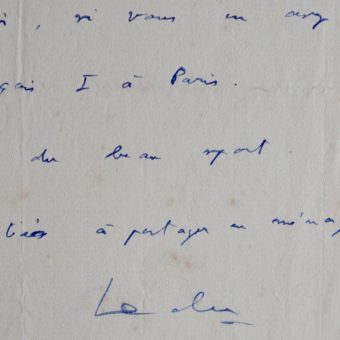 , si vous en avez
çois I à Paris.
du beau sport.
tiés à partager en ménag